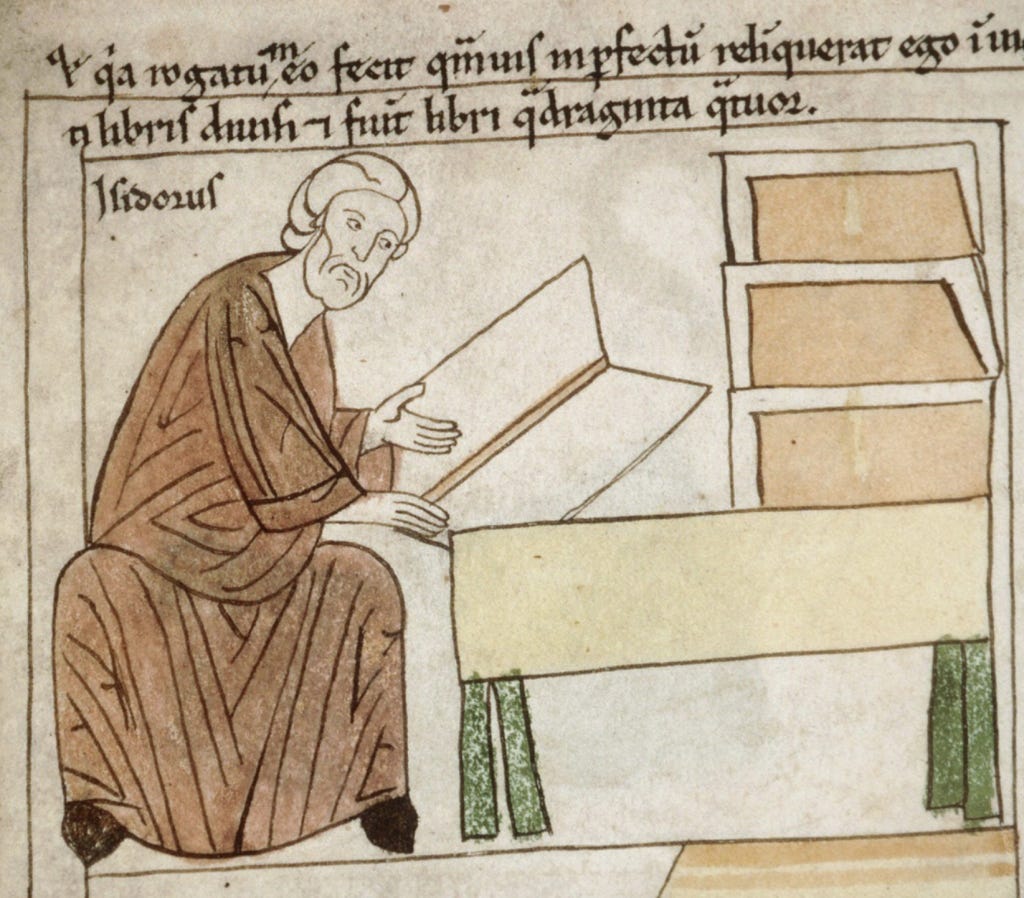 & q̃a rogatu meo fecit q̃muis inꝑfectū reliquerat ego ī ui
ti libris diuisi ⁊ fiūt libri q̃draginta q̃tuor.
Isidorus